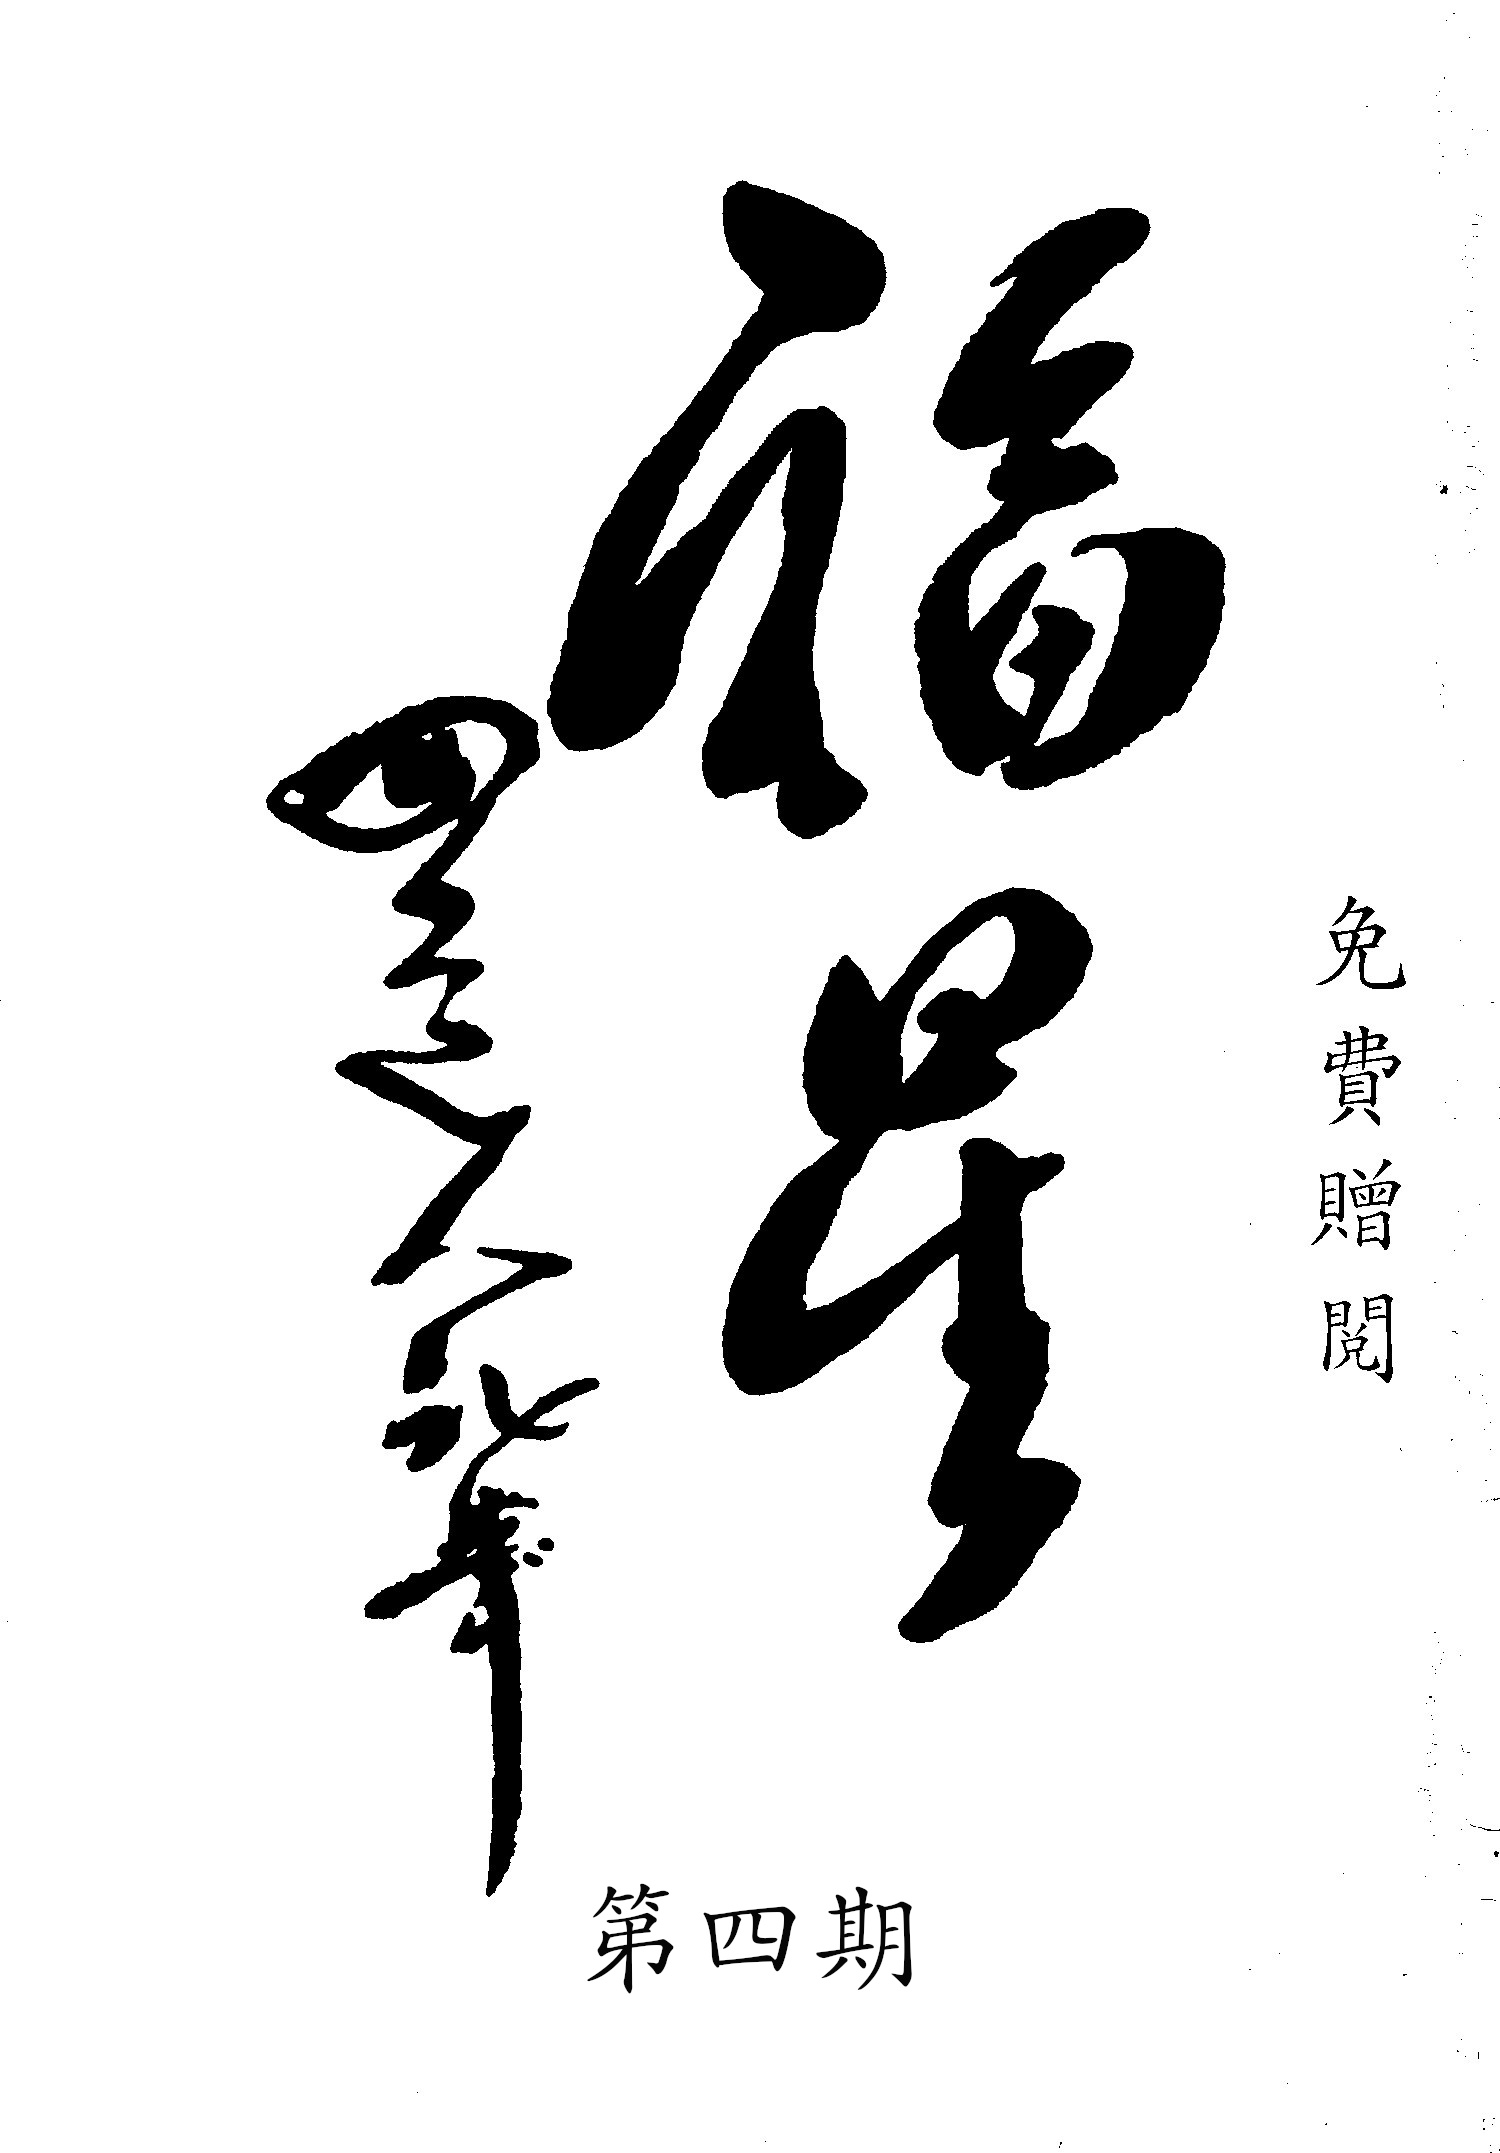 免費贈閱
福星
第四期